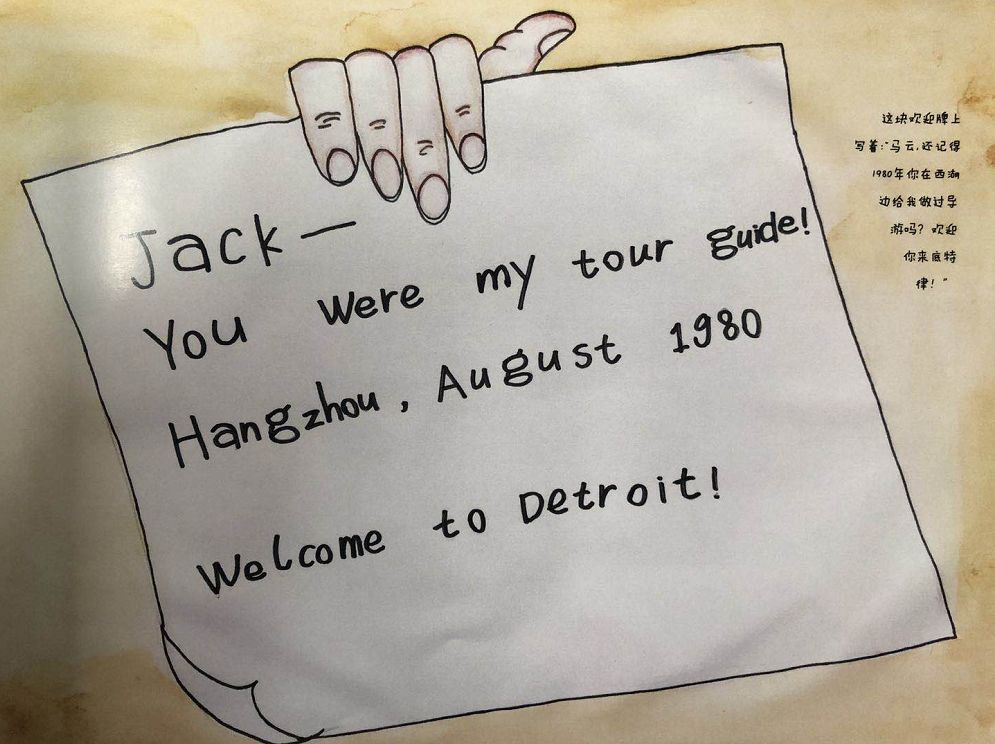 Jack—
You were my tour guide!
Hangzhou, August 1980
Welcome to Detroit!
这块欢迎牌上
写着:“马云,还记得
1980年你在西湖
边给我做过导
游吗? 欢迎
你来底特
律!”